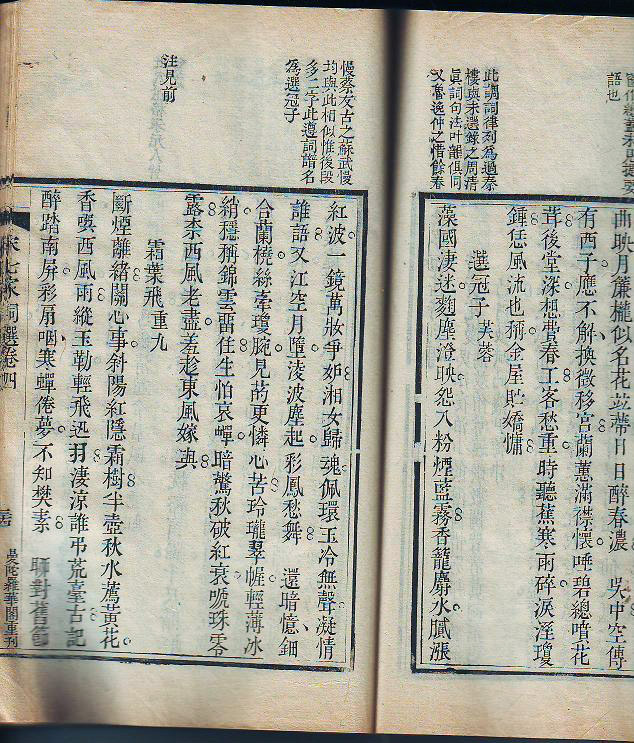 語也
此調詞律列爲過秦
樓與未選錄之周清
眞詞句法叶韻俱同
又魯逸仲之惜餘春
曲映月簾櫳似名花竝蒂日日醉春濃　吳中空傳
有西子應不解換徵移宮蘭蕙滿襟懷唾碧總噴花
茸後堂深想費春工客愁重時聽蕉寒雨碎淚溼瓊
鍾恁風流也稱金屋貯嬌慵
選冠子 芙蓉
藻國淒迷麴塵澄映怨入粉煙藍霧香籠麝水膩漲
慢蔡友古之蘇武慢
均與此相似惟後段
多二字此遵詞譜名
爲選冠子
注見前
紅波一鏡萬妝爭妒湘女歸魂佩環玉冷無聲凝情
誰語又江空月墮淩波塵起彩鳳愁舞　還暗憶鈿
合蘭橈絲牽瓊腕見菂更憐心苦玲瓏翠幄輕薄冰
綃穩稱錦雲畱住生怕哀蟬暗驚秋破紅衰啼珠零
露柰西風老盡羞趁東風嫁與
霜葉飛 重九
斷煙離緒關心事斜陽紅隱霜樹半壺秋水薦黃花
香噀西風雨縱玉勒輕飛迅羽淒涼誰弔荒臺古記
醉踏南屏彩扇咽寒蟬倦夢不知樊素　聊對舊節
宋七家詞選卷四
曼陀羅華閣重刊